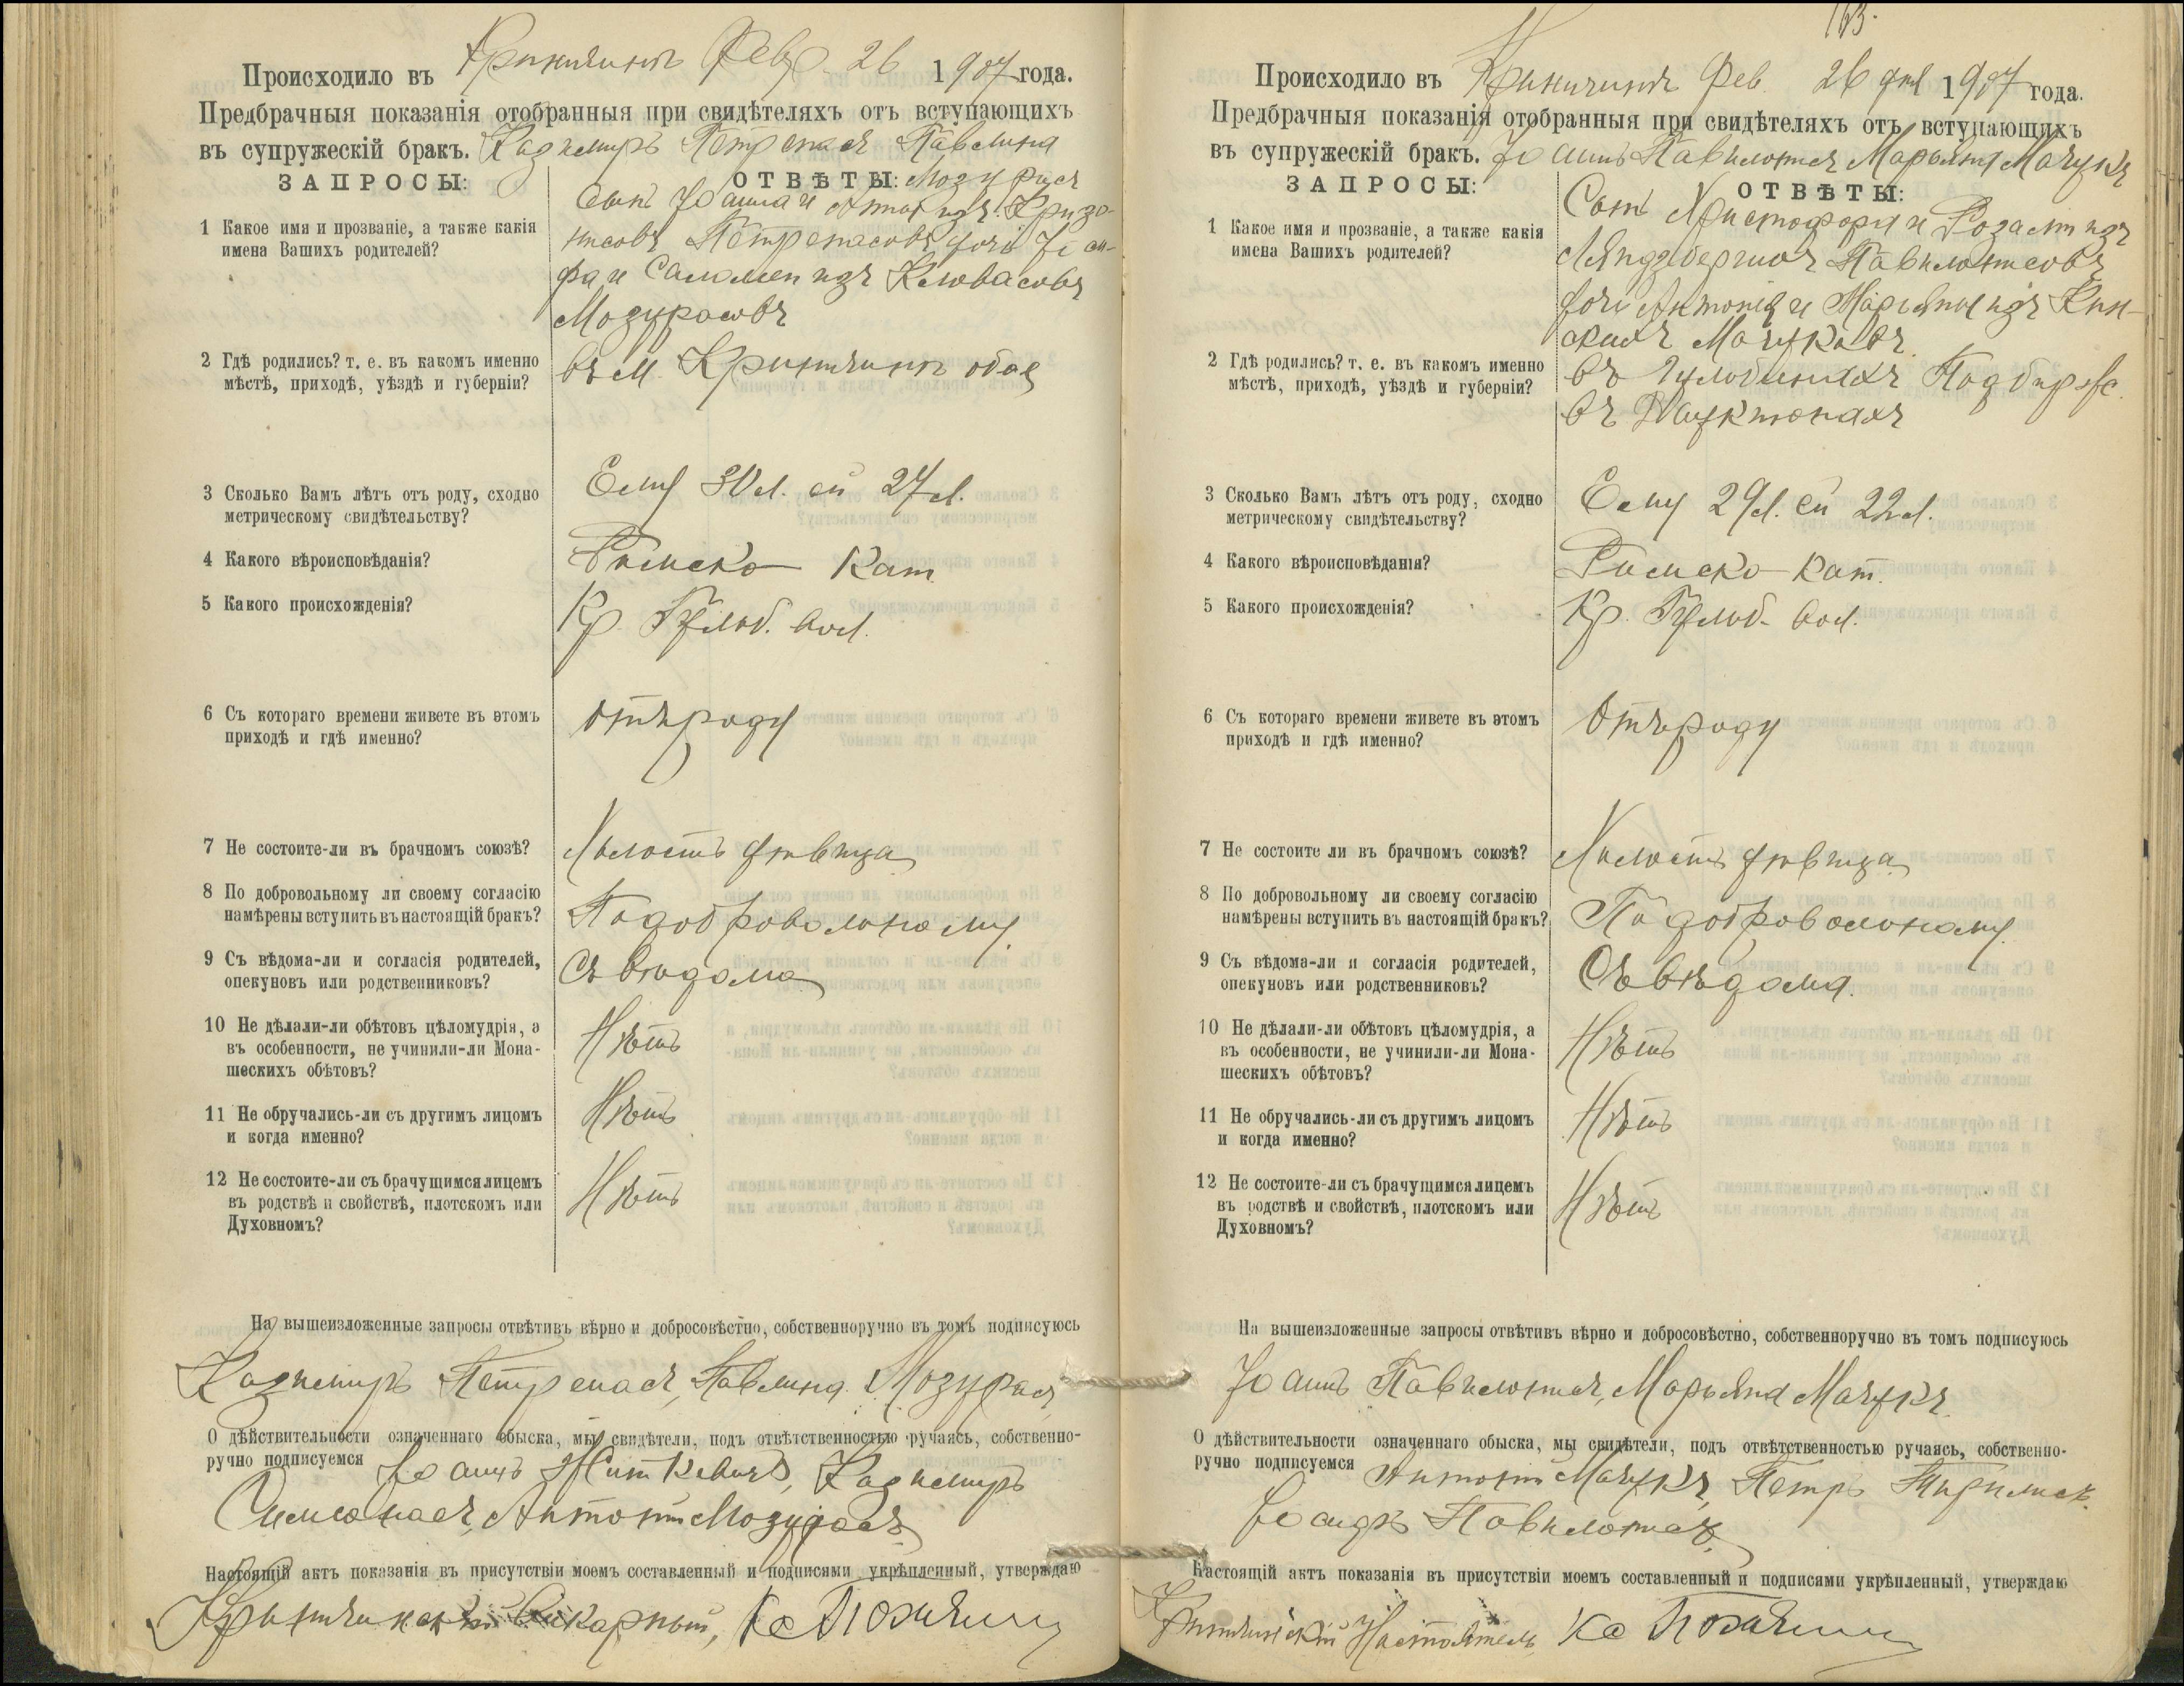 Происходило въ Фев. 26 1907 года.
Предбрачныя показанія отобранныя при свидѣтеляхъ отъ вступающихъ
въ супружескій бракъ. Казимиръ Петренасъ Павлина
ЗАПРОСЫ: ОТВѢТЫ: Мозурасъ
1 Какое имя и прозваніе, а также какія
имена Вашихъ родителей?
Сынъ Іоанна и изъ
Петренасовъ дочь
и Саломеи изъ
Мозурасовъ
2 Гдѣ родились? т. е. въ какомъ именно
мѣстѣ, приходѣ, уѣздѣ и губерніи?
въ м. обое
3 Сколько Вамъ лѣтъ отъ роду, сходно
метрическому свидѣтельству?
Ему 30 л. ей 27 л.
4 Какого вѣроисповѣданія?
Римско Кат.
5 Какого происхожденія?
Кр. Гульб. вол.
6 Съ котораго времени живете въ этомъ
приходѣ и гдѣ именно?
отъ роду
7 Не состоите-ли въ брачномъ союзѣ?
Холостъ дѣвица
8 По добровольному ли своему согласію
намѣрены вступить въ настоящій бракъ?
По добровольному
9 Съ вѣдома-ли и согласія родителей,
опекуновъ или родственниковъ?
Съ вѣдома
10 Не дѣлали-ли обѣтовъ цѣломудрія, а
въ особенности, не учинили-ли Мона-
шескихъ обѣтовъ?
Нѣтъ
11 Не обручались-ли съ другимъ лицомъ
и когда именно?
Нѣтъ
12 Не состоите-ли съ брачущимся лицемъ
въ родствѣ и свойствѣ, плотскомъ или
Духовномъ?
Нѣтъ
На вышеизложенные запросы отвѣтивъ вѣрно и добросовѣстно, собственноручно въ томъ подписуюсь
Казимиръ Петренасъ, Павлина Мозурасъ
О дѣйствительности означеннаго обыска, мы свидѣтели, подъ отвѣтственностью ручаясь, собственно-
ручно подписуемся Іоаннъ Казимиръ
Симонасъ, Антоній Мозурасъ
Настоящій актъ показанія въ присутствіи моемъ составленный и подписями укрѣпленный, утверждаю
163.
Происходило въ Фев. 26 дня 1907 года.
Предбрачныя показанія отобранныя при свидѣтеляхъ отъ вступающихъ
въ супружескій бракъ. Іоаннъ Марьяна Мачукъ
ЗАПРОСЫ: ОТВѢТЫ:
1 Какое имя и прозваніе, а также какія
имена Вашихъ родителей?
Сынъ Христофора и Розаліи изъ
дочь Антонія и Марьяны изъ
Мачуковъ
2 Гдѣ родились? т. е. въ какомъ именно
мѣстѣ, приходѣ, уѣздѣ и губерніи?
въ
въ
3 Сколько Вамъ лѣтъ отъ роду, сходно
метрическому свидѣтельству?
Ему 29 л. ей 22 л.
4 Какого вѣроисповѣданія?
Римско-Кат.
5 Какого происхожденія?
Кр. Гульб. вол.
6 Съ котораго времени живете въ этомъ
приходѣ и гдѣ именно?
Отъ роду
7 Не состоите ли въ брачномъ союзѣ?
Холостъ дѣвица
8 По добровольному ли своему согласію
намѣрены вступить въ настоящій бракъ?
По добровольному
9 Съ вѣдома-ли и согласія родителей,
опекуновъ или родственниковъ?
Съ вѣдома.
10 Не дѣлали-ли обѣтовъ цѣломудрія, а
въ особенности, не учинили-ли Мона-
шескихъ обѣтовъ?
Нѣтъ
11 Не обручались-ли съ другимъ лицомъ
и когда именно?
Нѣтъ
12 Не состоите-ли съ брачущимся лицемъ
въ родствѣ и свойствѣ, плотскомъ или
Духовномъ?
Нѣтъ
На вышеизложенные запросы отвѣтивъ вѣрно и добросовѣстно, собственноручно въ томъ подписуюсь
Іоаннъ Марьяна Мачукъ
О дѣйствительности означеннаго обыска, мы свидѣтели, подъ отвѣтственностью ручаясь, собственно-
ручно подписуемся Антоній Мачукъ, Петръ
Настоящій актъ показанія въ присутствіи моемъ составленный и подписями укрѣпленный, утверждаю
Настоятель